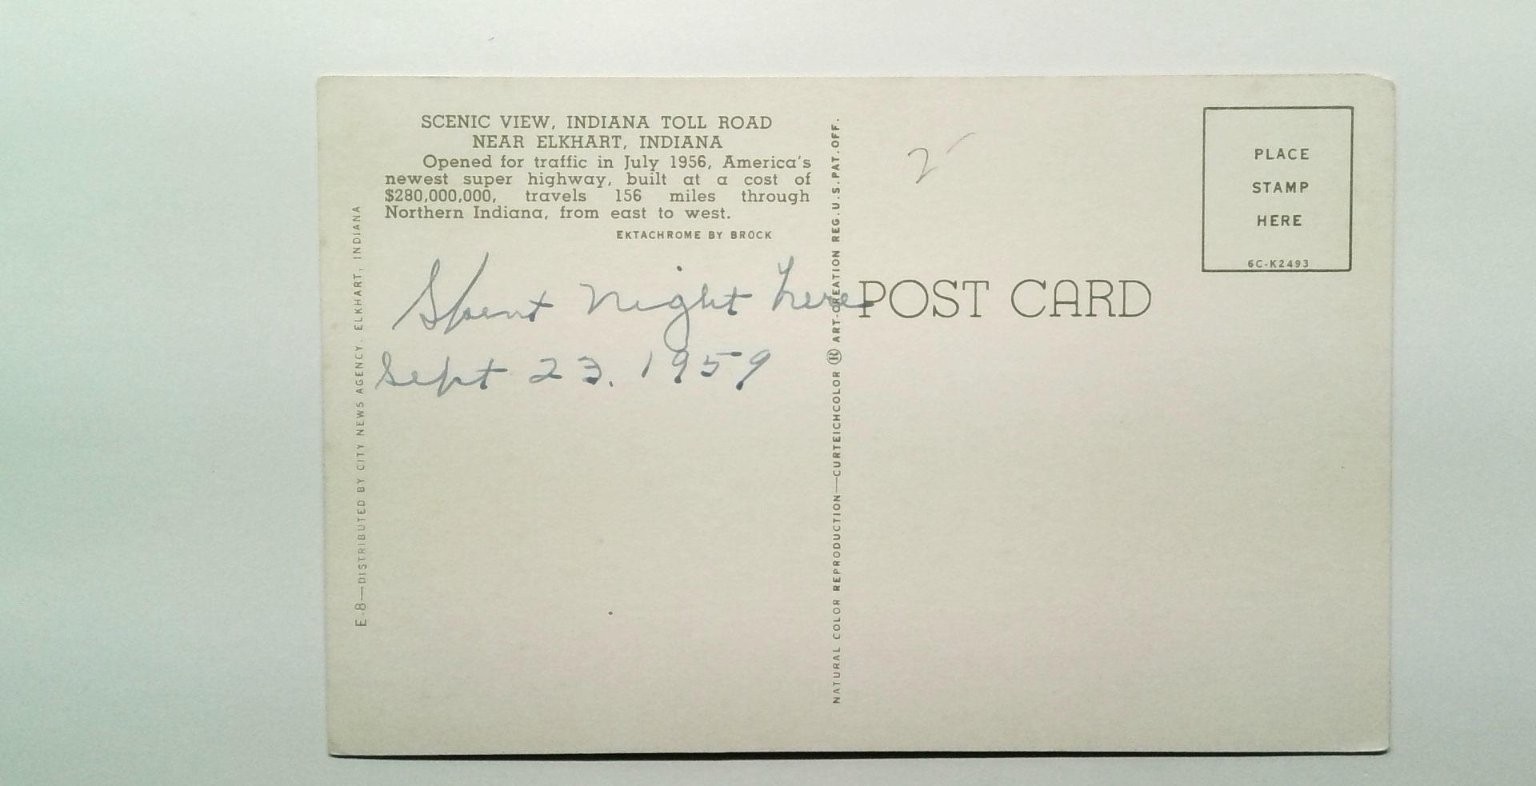 SCENIC VIEW, INDIANA TOLL ROAD
NEAR ELKHART, INDIANA
Opened for traffic in July 1956, America's
newest super highway, built at a cost of
$280,000,000, travels 156 miles through
Northern Indiana, from east to west.
EKTACHROME BY BROCK
Spent night here
Sept 23. 1959
E-8—DISTRIBUTED BY CITY NEWS AGENCY, ELKHART, INDIANA
NATURAL COLOR REPRODUCTION—CURTEICHCOLOR ® ART-CREATION REG. U.S. PAT. OFF.
2
POST CARD
PLACE
STAMP
HERE
6C-K2493